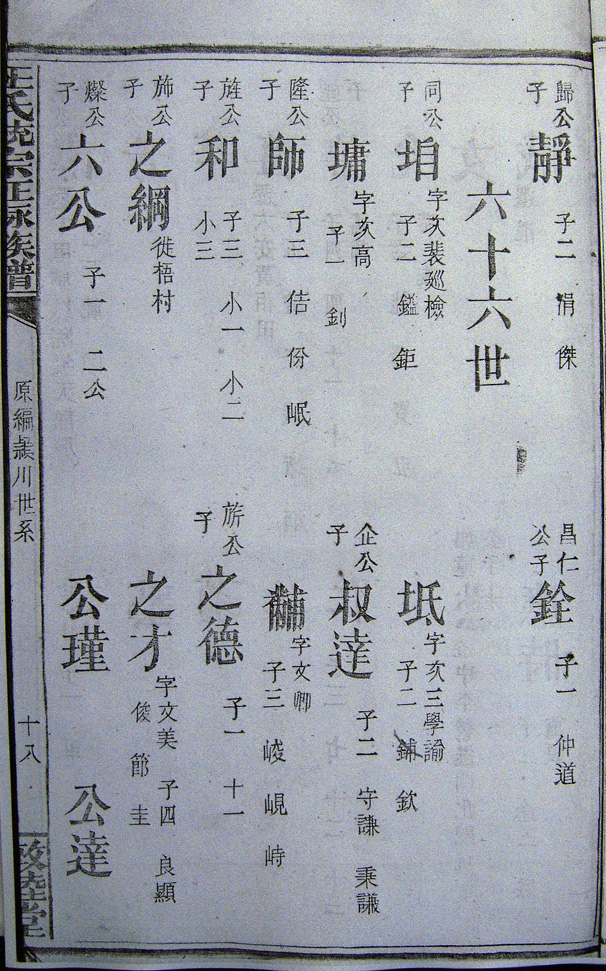 歸公子 靜 子二 涓 傑
昌仁公子 銓 子一 仲道
六十六世
司公子 垍 字次裴廵檢 子二 鑑 鉅
坻 字次三學諭 子二 鋪 欽
墉 字次高 子一 釗
企公子 叔達 子二 守謙 秉謙
隆公子 師 子三 佶 份 岷
黼 字文卿 子三 崚 峴 峙
旌公子 和 子三 小一 小二 小三
旂公子 之德 子一 十一
斾公子 之綱 徙梧村
之才 字文美 子四 良顯 俊 節 圭
燦公子 六公 子一 二公
公瑾
公達
王氏統宗正脉族譜
原編義川世系
十八
敦睦堂